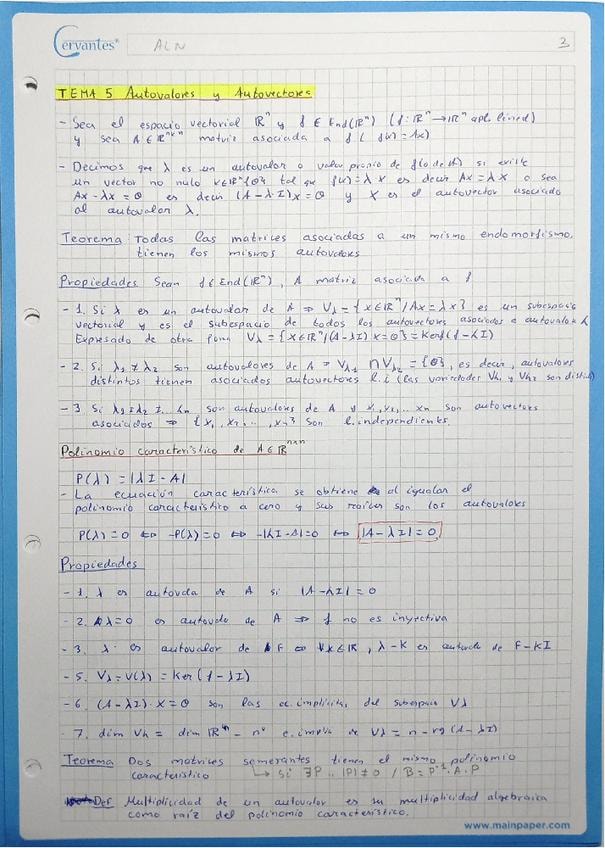 Cervantes® ALN 3
TEMA 5 Autovalores y Autovectores
- Sea el espacio vectorial ℝⁿ y f ∈ End(ℝⁿ) (f: ℝⁿ → ℝⁿ apli. lineal)
y sea A ∈ ℝⁿˣⁿ matriz asociada a f ( f(x) = Ax)
- Decimos que λ es un autovalor o valor propio de f (o de A) si existe
un vector no nulo x∈ℝⁿ\{θ} tal que f(x) = λx es decir Ax = λx o sea
Ax - λx = θ es decir (A - λ·I)x = θ y x es el autovector asociado
al autovalor λ.
Teorema Todas las matrices asociadas a un mismo endomorfismo,
tienen los mismos autovalores
Propiedades Sean f∈End(ℝⁿ), A matriz asociada a f
- 1. Si λ es un autovalor de A ⇒ Vλ = {x∈ℝⁿ / Ax = λx} es un subespacio
vectorial y es el subespacio de todos los autovectores asociados a autovalor λ
Expresado de otra forma Vλ = {x∈ℝⁿ/(A-λI)x = θ} = Ker(f - λI)
- 2. Si λ₁ ≠ λ₂ son autovalores de A ⇒ Vλ₁ ∩ Vλ₂ = {θ}, es decir, autovalores
distintos tienen asociados autovectores l.i (las variedades Vλ₁ y Vλ₂ son distint)
- 3 Si λ₁ ≠ λ₂ ≠ ... λn son autovalores de A y x₁, x₂, ... xn son autovectores
asociados ⇒ {x₁, x₂, ... xn} son l. independientes.
Polinomio característico de A∈ℝⁿˣⁿ
P(λ) = |λI - A|
- La ecuación característica se obtiene al igualar el
polinomio característico a cero y sus raíces son los autovalores
P(λ)=0 ⇔ -P(λ)=0 ⇔ -|λI-A|=0 ⇔ |A - λI| = 0
Propiedades
- 1. λ es autovda de A si |A - λI| = 0
- 2. λ=0 es autovdo de A ⇒ f no es inyectiva
- 3. λ es autovalor de F ⇔ ∀k∈ℝ, λ-K es de F-KI
- 5. Vλ = V(λ) = Ker(f - λI)
- 6. (A-λI)·x = θ son las ec. implícitas del subespacio Vλ
- 7. dim Vλ = dim ℝⁿ - nº e. implíc de Vλ = n - rg(A - λI)
Teorema Dos matrices semejantes tienen el mismo polinomio
característico ↳ si ∃P .. |P| ≠ 0 / B = P⁻¹·A·P
Def Multiplicidad de un autovalor es su multiplicidad algebraica
como raíz del polinomio característico.
www.mainpaper.com